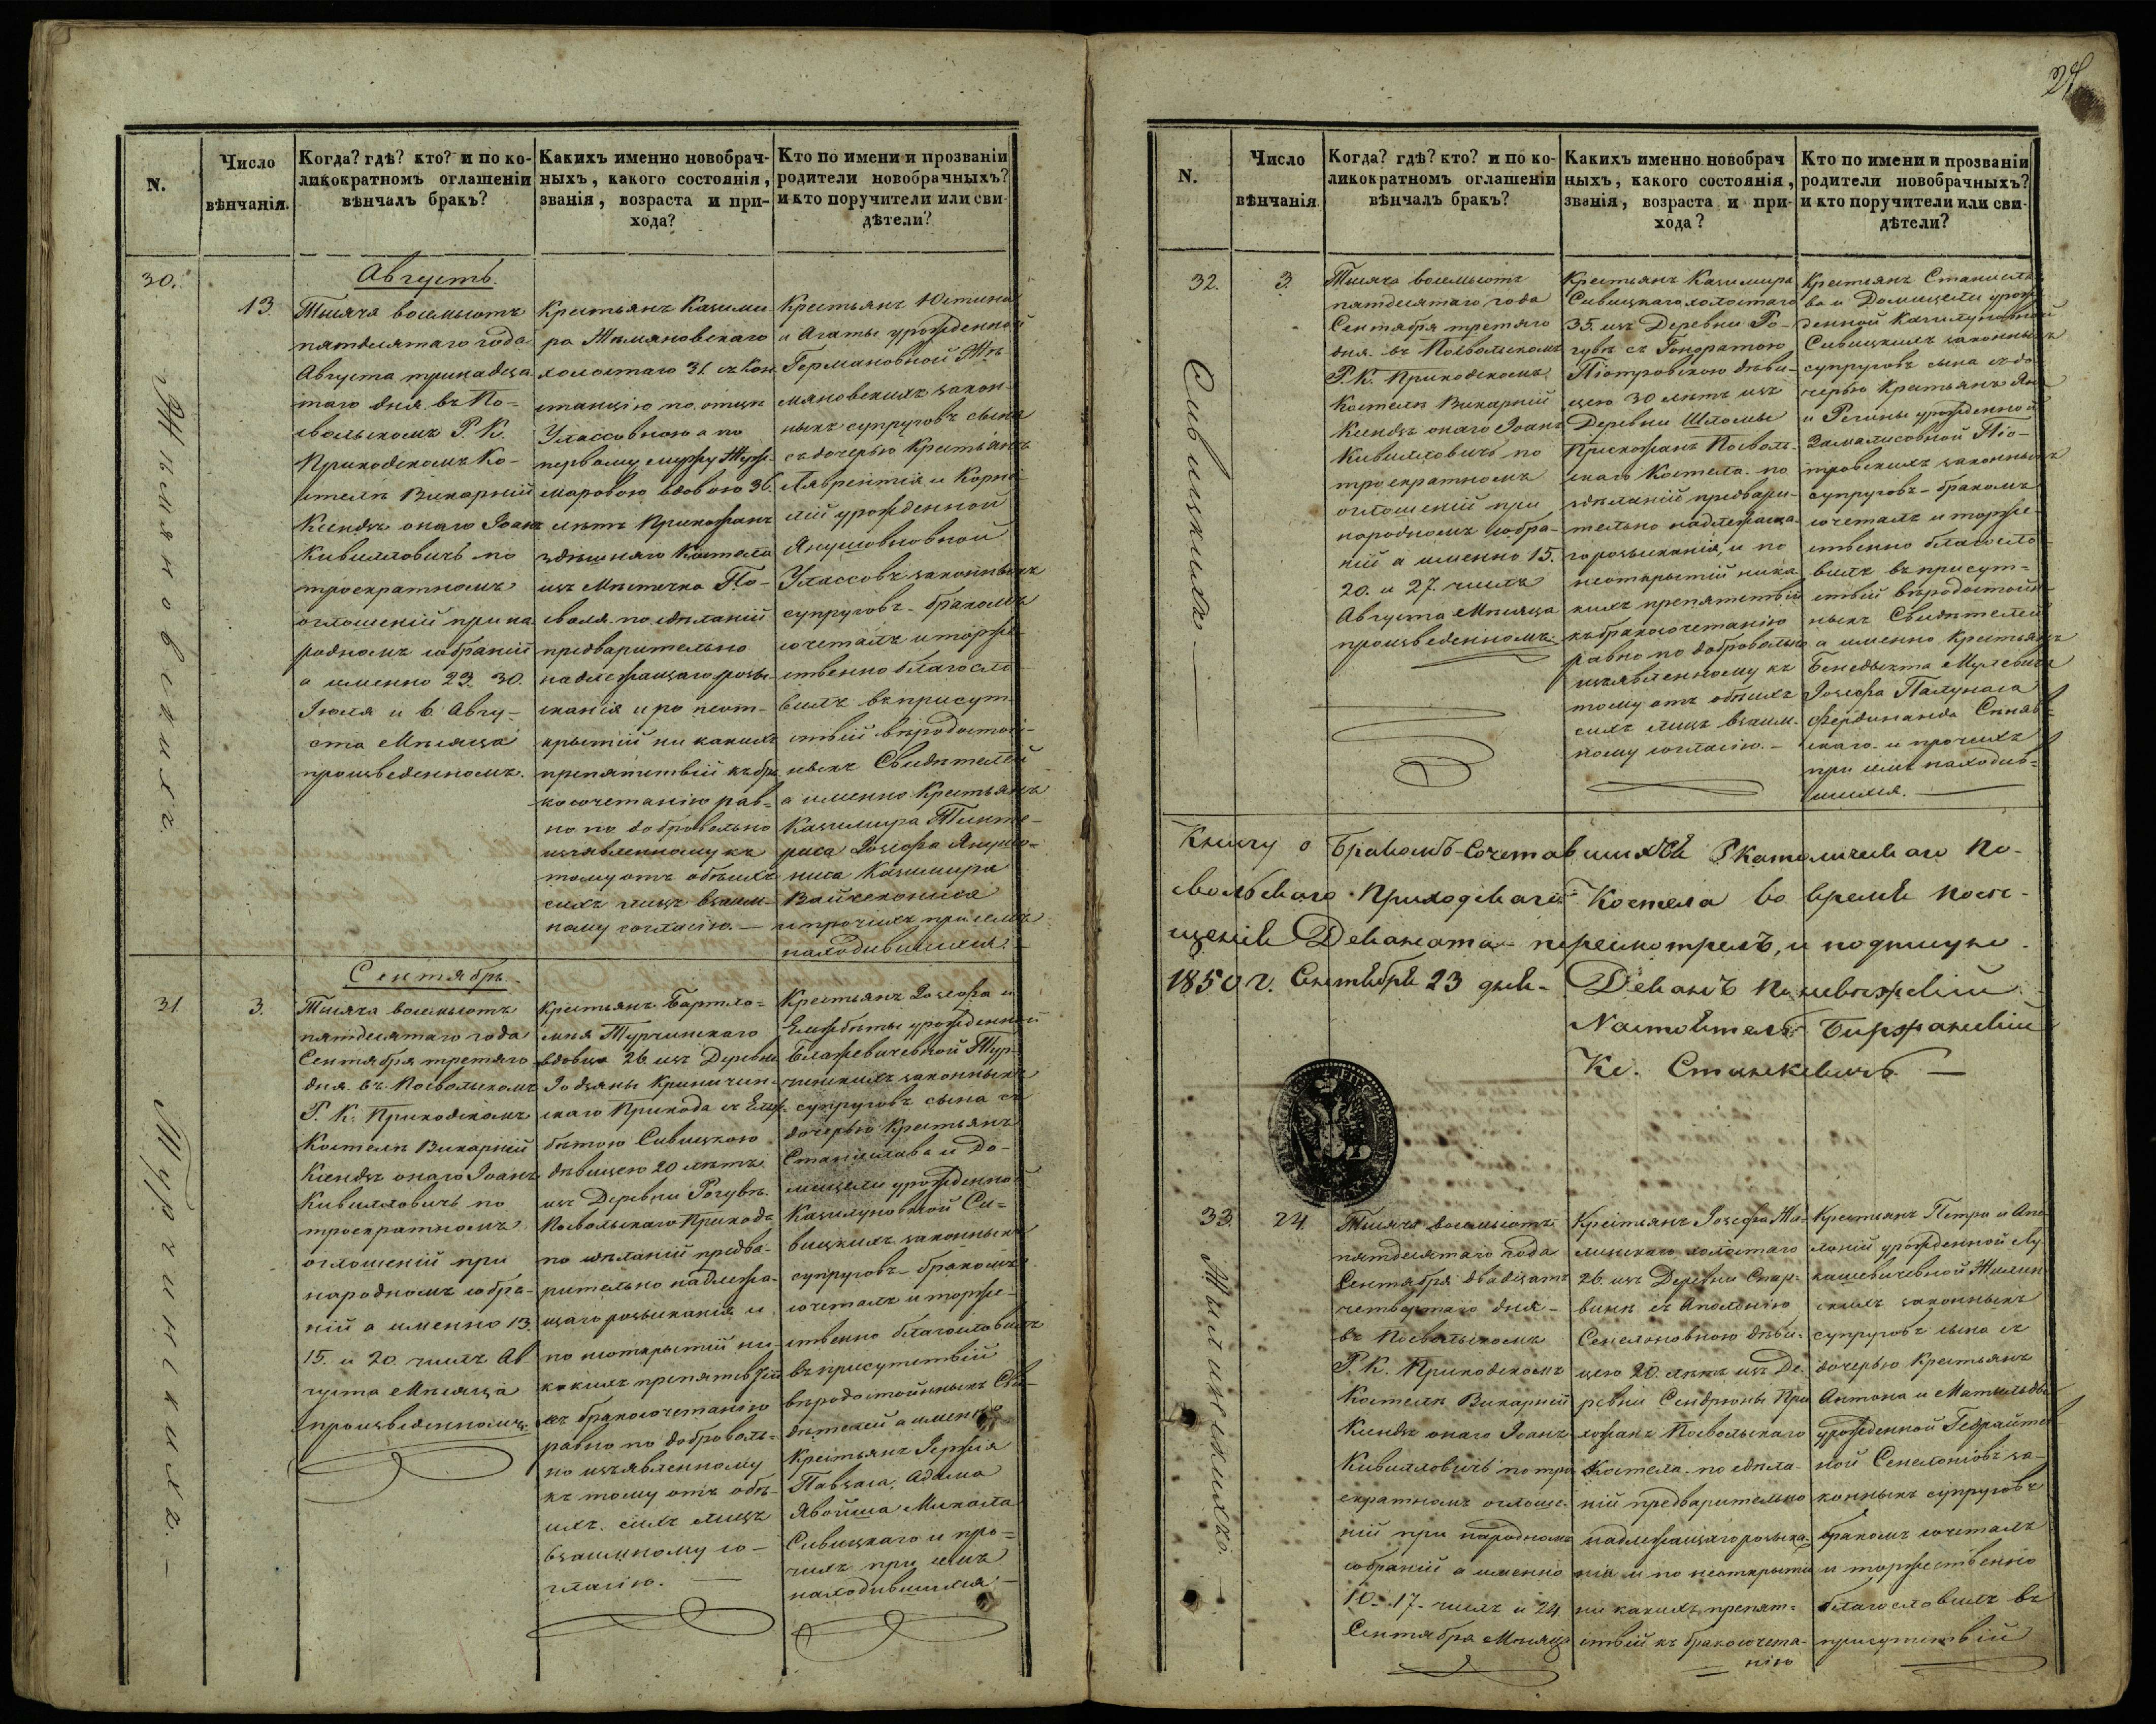 N.
Число
вѣнчанія.
Когда? гдѣ? кто? и по ко-
ликократномъ оглашеніи
вѣнчалъ бракъ?
Какихъ именно новобрач-
ныхъ, какого состоянія,
званія, возраста и при-
хода?
Кто по имени и прозванію
родители новобрачныхъ?
и кто поручители или сви-
дѣтели?
30.
13.
Августъ.
Тысяча восемьсотъ
пятдесятаго года
Августа тринадца
таго дня въ По-
свольскомъ Р. К.
Приходскомъ Ко-
стелѣ Викарній
Ксендзъ онаго Іоанъ
Кивилловичъ по
троекратномъ
оглошеній при на
родномъ собраній
а именно 23. 30.
Іюля и 6. Авгу-
ста Мѣсяца
произведенномъ.
Крестьянъ Казими-
ра
холостаго 31. съ Кон
станціею по отцѣ
Улассовною а по
первому мужу
маровою вдовою 36.
лѣтъ Прихожанъ
здѣшняго Костела
изъ Мѣстечка По-
своля. по сдѣланій
предварительно
надлежащаго розы-
сканія и по неот-
крытій ни какихъ
препятствій къ бра
косочетанію рав-
но по добровольно
изъявленному къ
тому отъ обѣихъ
сихъ лицъ взаим-
ному согласію. —
Крестьянъ Юстина
и Агаты урожденной
Германовной
мяновскихъ закон-
ныхъ супруговъ сына
съ дочерью Крестьянъ
Лаврентія и Корне
лій урожденной
Улассовъ законныхъ
супруговъ - бракомъ
сочеталъ и торже-
ственно благосло-
вилъ въ присут-
ствій вѣродостой-
ныхъ Свидѣтелей
а именно Крестьянъ
Казимира
Іосефа
Казимира
и прочихъ при семъ
находившихся. —
31.
3.
Сентябрь.
Тысяча восемьсотъ
пятдесятаго года
Сентября третяго
дня въ Посвольскомъ
Р. К. Приходскомъ
Костелѣ Викарній
Ксендзъ онаго Іоанъ
Кивилловичъ по
троекратномъ
оглошеній при
народномъ собра-
ній а именно 13.
15. и 20. числъ Ав
густа Мѣсяца
произведенномъ.
Крестьянъ Бартло-
мея Турчинскаго
вдовца 26 изъ Деревни
Іодзяны Криничин-
скаго Прихода съ Елж-
бѣтою Сивицкою
дѣвицею 20 лѣтъ
изъ Деревни Рагувѣ
Посвольскаго Прихода
по сдѣланій предва-
рительно надлежа-
щаго розысканія и
по неоткрытій ни
какихъ препятствій
къ бракосочетанію
равно по доброволь-
но изъявленному
къ тому отъ обѣ-
ихъ сихъ лицъ
взаимному со-
гласію. —
Крестьянъ Іосефа и
Елжбѣты урожденной
Блажевичевной Тур-
чинскихъ законныхъ
супруговъ сына съ
дочерью Крестьянъ
Станислава и До-
мицели урожденной
Казилуновной Си-
вицкихъ законныхъ
супруговъ - бракомъ
сочеталъ и торже-
ственно благословилъ
въ присутствій
вѣродостойныхъ Сви
дѣтелей а именно
Крестьянъ
Адама
Михаила
Сивицкаго и про-
чихъ при семъ
находившихся. —
Турчинскихъ. —
N.
Число
вѣнчанія.
Когда? гдѣ? кто? и по ко-
ликократномъ оглашеніи
вѣнчалъ бракъ?
Какихъ именно новобрач
ныхъ, какого состоянія,
званія, возраста и при-
хода?
Кто по имени и прозванію
родители новобрачныхъ?
и кто поручители или сви-
дѣтели?
32.
3.
Сивицкихъ. —
Тысяча восемьсотъ
пятдесятаго года
Сентября третяго
дня въ Посвольскомъ
Р. К. Приходскомъ
Костелѣ Викарній
Ксендзъ онаго Іоанъ
Кивилловичъ по
троекратномъ
оглошеній при
народномъ собра-
ній а именно 15.
20. и 27. числъ
Августа Мѣсяца
произведенномъ.
Крестьянъ Казимира
Сивицкаго холостаго
35. изъ Деревни Ро-
гувѣ съ Гоноратою
Піотровскою дѣви-
цею 30 лѣтъ изъ
Деревни
Прихожанъ Посволь-
скаго Костела. по
сдѣланій предвари-
тельно надлежаща-
го розысканія, и по
неоткрытій ника
кихъ препятствій
къ бракосочетанію
равно по добровольно
изъявленному къ
тому отъ обѣихъ
сихъ лицъ взаим-
ному согласію. —
Крестьянъ Станисла
ва и Домицели урож
денной Казилуновной
Сивицкихъ законныхъ
супруговъ сына съ до
черью Крестьянъ Яна
и Регины урожденной
Піо-
тровскихъ законныхъ
супруговъ - бракомъ
сочеталъ и торже-
ственно благосло-
вилъ въ присут-
ствій вѣродостой-
ныхъ Свидѣтелей
а именно Крестьянъ
Бенедыкта
Іосефа
Фердинанда
скаго и прочихъ
при семъ находив-
шихся. —
Книгу о Бракомъ Сочетавшихся Р Католическаго По-
свольскаго Приходскаго Костела во время посѣ-
щенія Деканата пересмотрелъ, и подписую.
1850 г. Сентября 23 дня. Деканъ Поневѣжскій
Настоятель Биржанскій
Кс. Станкевичъ —
33.
24
Тысяча восемьсотъ
пятдесятаго года
Сентября двадцать
четвертаго дня
въ Посвольскомъ
Р. К. Приходскомъ
Костелѣ Викарній
Ксендзъ онаго Іоанъ
Кивилловичъ по тро
екратномъ оглоше-
ній при народномъ
собраній а именно
10. 17. числъ и 24
Сентября Мѣсяца
Крестьянъ Іосефа Жи-
линскаго холостаго
26. изъ Деревни
съ Аполонію
дѣви-
цею 20. лѣтъ изъ Де-
ревни При
хожанъ Посвольскаго
Костела. по сдѣла-
ній предварительно
надлежащаго розыска-
нія и по неоткрытій
ни какихъ препят-
ствій къ бракосочета-
нію
Крестьянъ Петра и Апо
лоній урожденной Лу-
кашевичевной Жилин
скихъ законныхъ
супруговъ сына съ
дочерью Крестьянъ
Антона и Матыльды
урожденной
ной за-
конныхъ супруговъ
бракомъ сочеталъ
и торжественно
благословилъ въ
присутствій